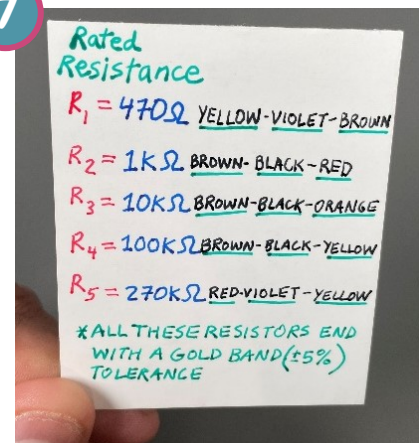 7
Rated
Resistance
R₁ = 470Ω YELLOW-VIOLET-BROWN
R₂ = 1KΩ BROWN-BLACK-RED
R₃ = 10KΩ BROWN-BLACK-ORANGE
R₄ = 100KΩ BROWN-BLACK-YELLOW
R₅ = 270KΩ RED-VIOLET-YELLOW
*ALL THESE RESISTORS END
WITH A GOLD BAND (±5%)
TOLERANCE